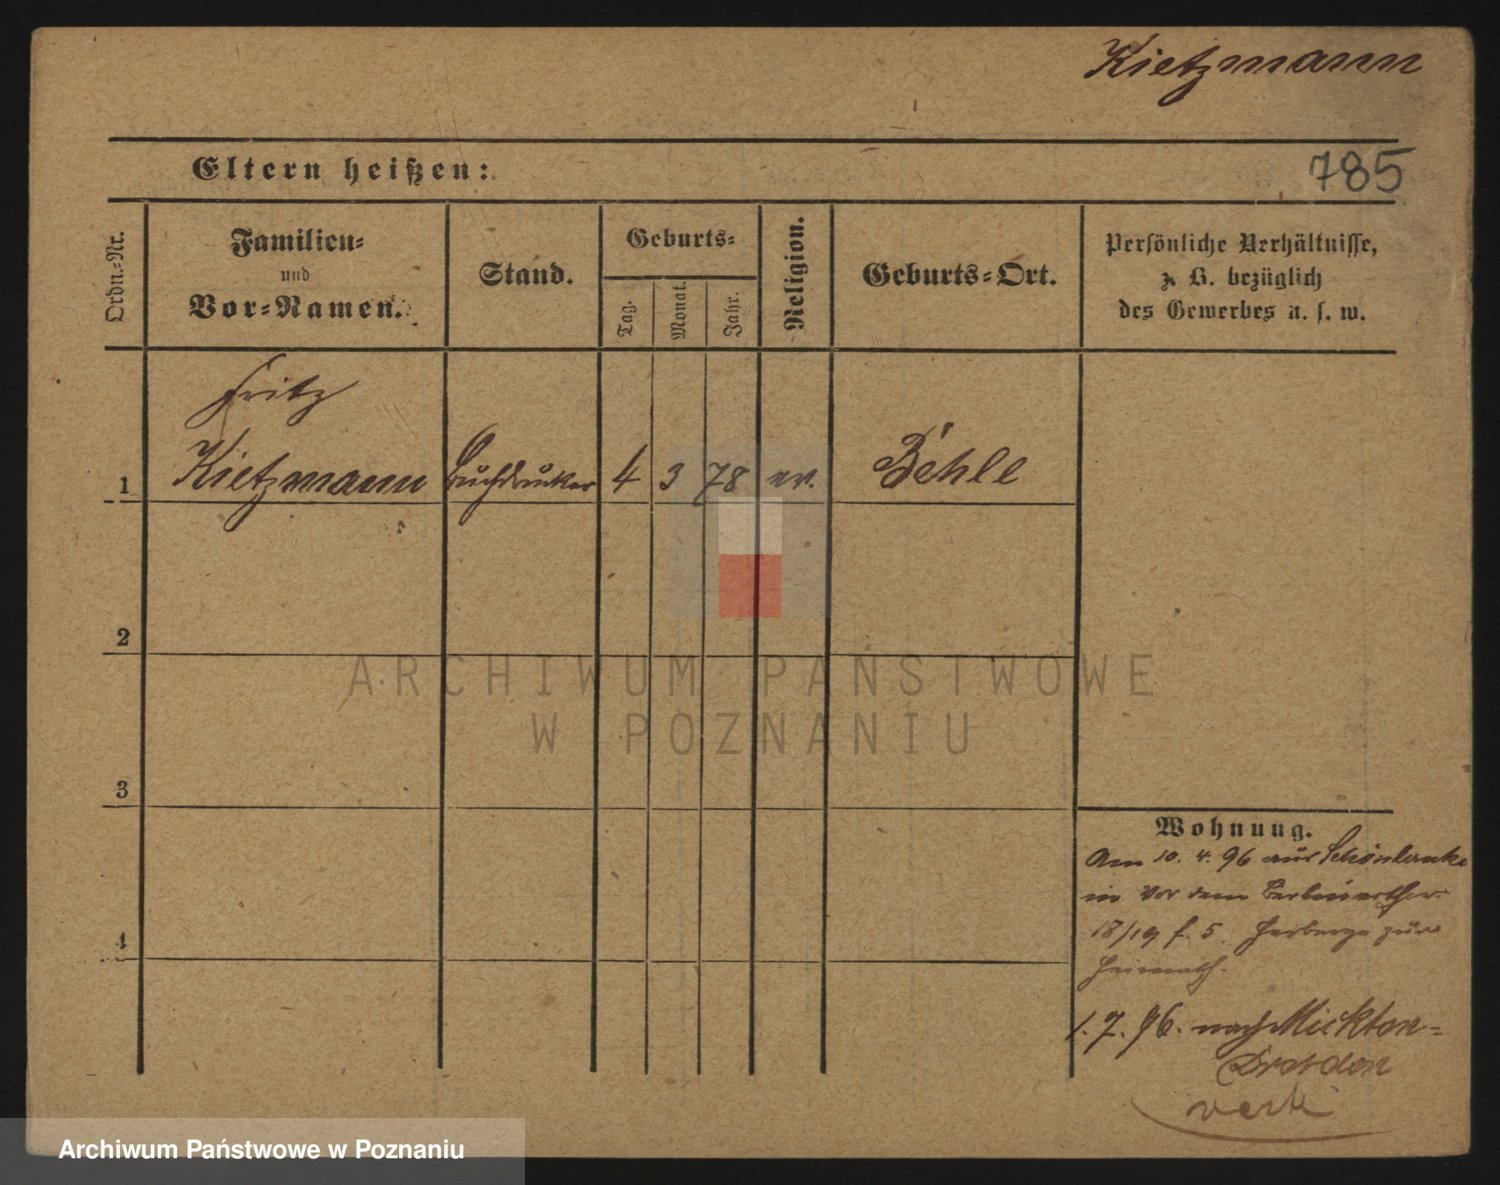 Kietzmann
Eltern heißen:
785
Ordn.-Nr.
Familien-
und
Vor-Namen.
Stand.
Geburts-
Tag.
Monat.
Jahr.
Religion.
Geburts-Ort.
Persönliche Verhältnisse,
z. B. bezüglich
des Gewerbes u. s. w.
Fritz
1 Kietzmann Buchdrucker 4 3 78 ev. Behle
2
ARCHIWUM PAŃSTWOWE
W POZNANIU
3
Wohnung.
Am 10. 4. 96 aus Schönlanke
in Vor dem Berlinerthor
18/19 f. 5. Herberge zur
Heimath.
4
1. 7. 96. nach Mickton-
Dresden
Archiwum Państwowe w Poznaniu